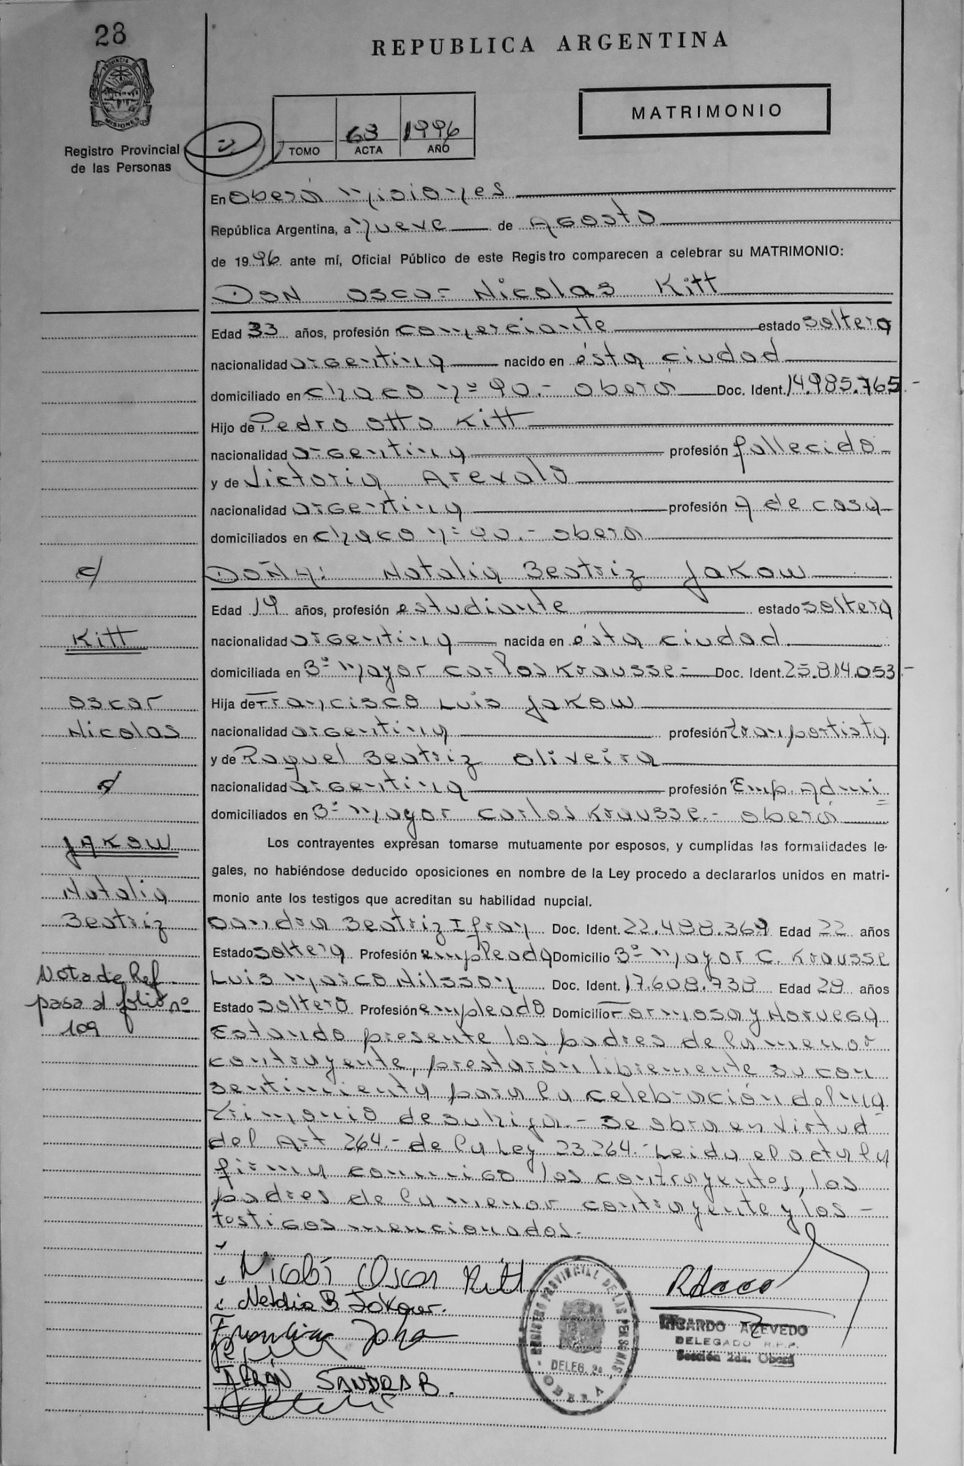 28
REPUBLICA ARGENTINA
PROVINCIA DE MISIONES
Registro Provincial
de las Personas
TOMO
63
ACTA
1996
AÑO
MATRIMONIO
En Oberá Misiones
República Argentina, a Nueve de Agosto
de 1996 ante mí, Oficial Público de este Registro comparecen a celebrar su MATRIMONIO:
Don Oscar Nicolas Kitt
Edad 33 años, profesión comerciante estado soltero
nacionalidad argentina nacido en ésta ciudad
domiciliado en Chaco nº 90.- Oberá Doc. Ident. 14.985.765.-
Hijo de Pedro Otto Kitt
nacionalidad argentina profesión fallecido
y de Victoria Arevalo
nacionalidad argentina profesión a de casa
domiciliados en Chaco nº 90.- Oberá
Doña: Natalia Beatriz Jakow
Edad 19 años, profesión estudiante estado soltera
nacionalidad argentina nacida en ésta ciudad
domiciliada en Bº Mayor Carlos Krausse Doc. Ident. 25.814.053-
Hija de Francisco Luis Jakow
nacionalidad argentina profesión transportista
y de Raquel Beatriz Oliveira
nacionalidad argentina profesión Emp. Admi
domiciliados en Bº Mayor Carlos Krausse.- Oberá
Los contrayentes expresan tomarse mutuamente por esposos, y cumplidas las formalidades le-
gales, no habiéndose deducido oposiciones en nombre de la Ley procedo a declararlos unidos en matri-
monio ante los testigos que acreditan su habilidad nupcial.
Sandra Beatriz Ifran Doc. Ident. 22.498.369 Edad 22 años
Estado soltera Profesión empleada Domicilio Bº Mayor C. Krausse
Luis Marco Nilsson Doc. Ident. 17.608.938 Edad 28 años
Estado soltero Profesión empleado Domicilio Formosa y Noruega
Estando presente los padres de la menor
contrayente, prestarón libremente su con
sentimiento para la celebración del ma
trimonio de su hija.- Se obra en virtud
del Art 264.- de la Ley 23.264.- Leida el acta la
firman conmigo los contrayentes, los
padres de la menor contrayente y los -
testigos mencionados.-
c/
Kitt
Oscar
Nicolas
c/
Jakow
Natalia
Beatriz
Nota de Ref
pasa al folio nº
109
Nicolás Oscar Kitt
Natalia B Jakow.
IFRÁN SANDRA B.
REGISTRO PROVINCIAL DE LAS PERSONAS
DELEG. 2a.
OBERA
RICARDO AZEVEDO
DELEGADO R.P.P.
Sección 2da. Oberá